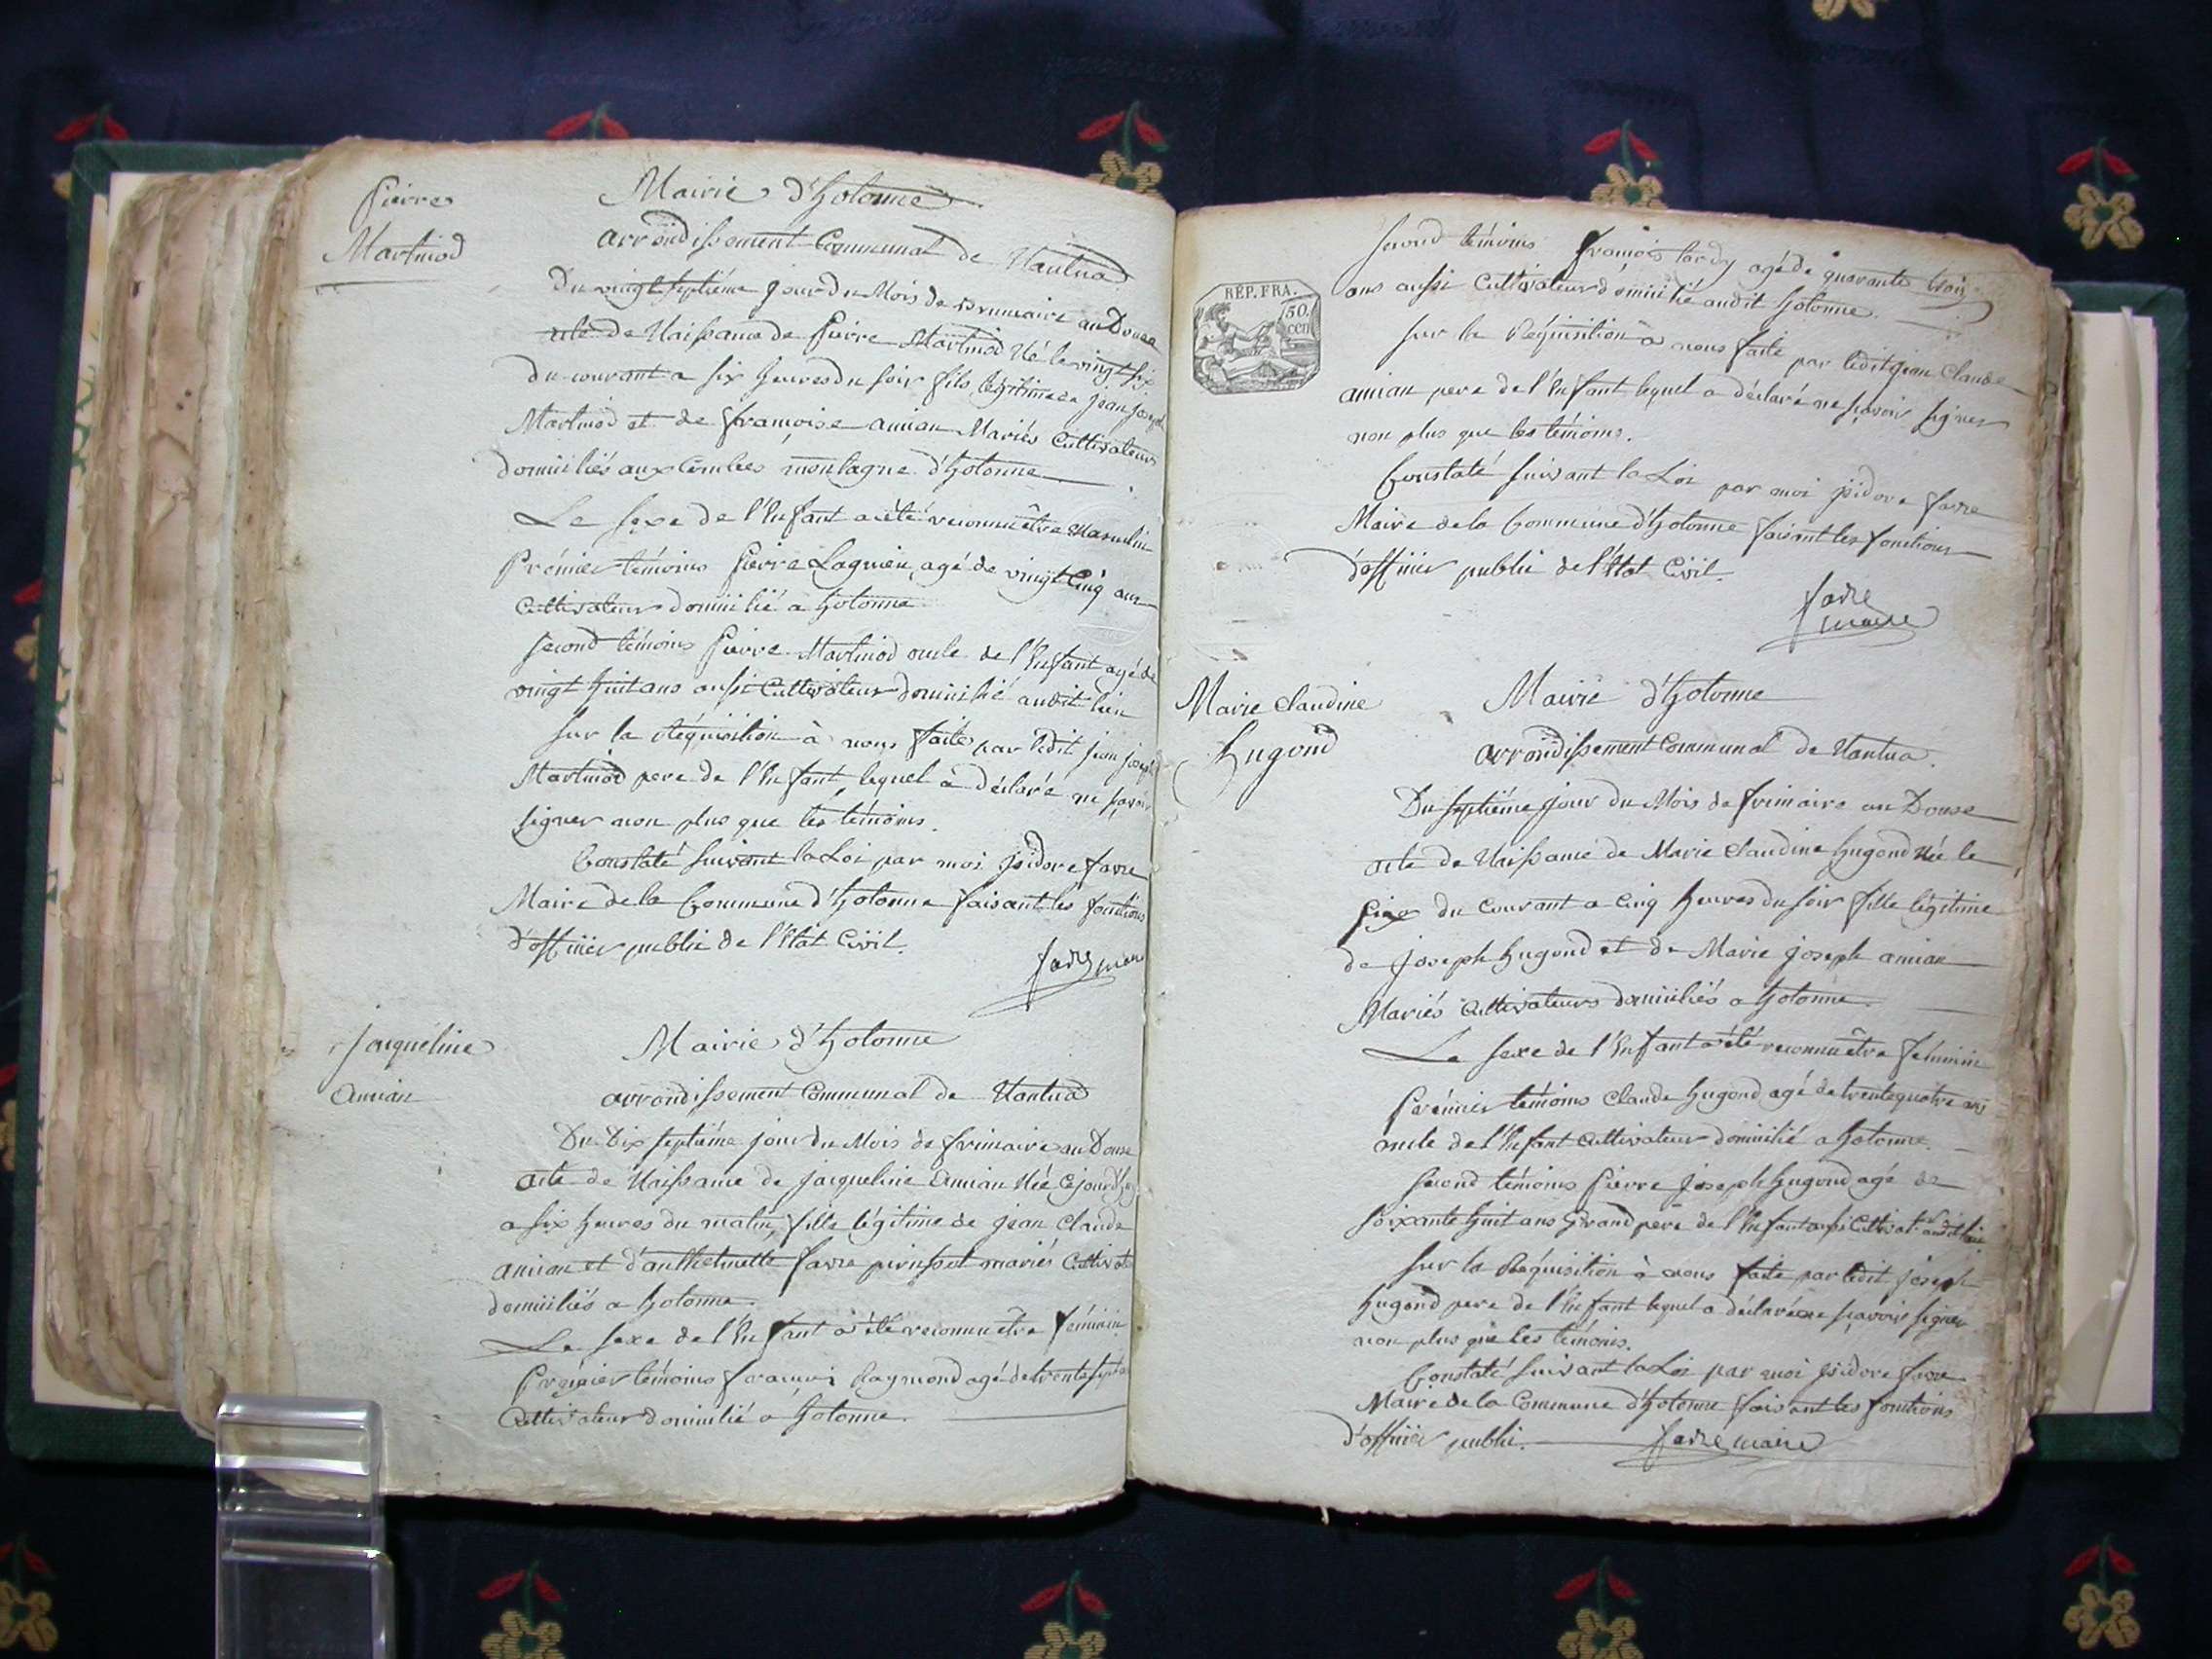 Pierre
Martinod
Mairie d'hotonne
arrondissement Communal de Nantua
Du vingt septiéme jour du Mois de Brumaire an Douze
acte de Naissance de Pierre Martinod Né le vingt six
du courant a six heures du soir fils légitime de jean joseph
Martinod et de françoise amian Mariés Cultivateurs
domiciliés aux Combes montagne d'hotonne
Le sexe de l'Enfant a été reconnu être Masculin
Prémier témoins Pierre Lagnieu agé de vingt Cinq ans
Cultivateur domicilié a hotonne
second témoins Pierre Martinod oncle de l'Enfant agé de
vingt huit ans aussi Cultivateur domicilié audit lieu
sur la Réquisition à nous faite par ledit jean joseph
Martinod pere de l'Enfant, lequel à déclaré ne sçavoir
signer non plus que les témoins.
Constaté suivant la Loi par moi jsidore favre
Maire de la Commune d'hotonne faisant les fonctions
d'officier public de l'Etat Civil.
favre maire
jacqueline
amian
Mairie d'hotonne
arrondissement Communal de Nantua
Du Dix septiéme jour du Mois de frimaire an Douze
acte de Naissance de jacqueline amian Née Cejourd'huy
a six heures du matin, fille légitime de jean Claude
amian et d'anthelmette favre mariés Cultivat
domiciliés a hotonne.
Le sexe de l'Enfant a été reconnu être féminin
Prémier témoins francois Raymond agé de trente sept ans
Cultivateur domicilié a hotonne.
REP. FRA.
50.
cen
second témoins francois tardy agé de quarante trois
ans aussi Cultivateur domicilié audit hotonne.
sur la Réquisition a nous faite par ledit jean Claude
amian pere de l'Enfant lequel a déclaré ne sçavoir signer
non plus que les témoins.
Constaté suivant la Loi par moi jsidore favre
Maire de la Commune d'hotonne faisant les fonctions
d'officier public de l'Etat Civil.
favre
maire
Marie Claudine
hugond
Mairie d'hotonne
arrondissement Communal de Nantua.
Du septiéme jour du Mois de frimaire an Douze
acte de Naissance de Marie Claudine hugond Née le
six du Courant a Cinq heures du soir fille légitime
de joseph hugond et de Marie joseph amian
Mariés Cultivateurs domiciliés a hotonne.
Le sexe de l'Enfant a été reconnu être féminin
Prémier témoins Claude hugond agé de trente quatre ans
oncle de l'Enfant Cultivateur domicilié a hotonne.
second témoins Pierre joseph hugond agé de
soixante huit ans Grand pere de l'Enfant aussi Cultivat.r audit lieu
sur la Réquisition à nous faite par ledit joseph
hugond pere de l'Enfant lequel a déclaré ne sçavoir signer
non plus que les témoins.
Constaté suivant la Loi par moi jsidore favre
Maire de la Commune d'hotonne faisant les fonctions
d'officier public.
favre maire